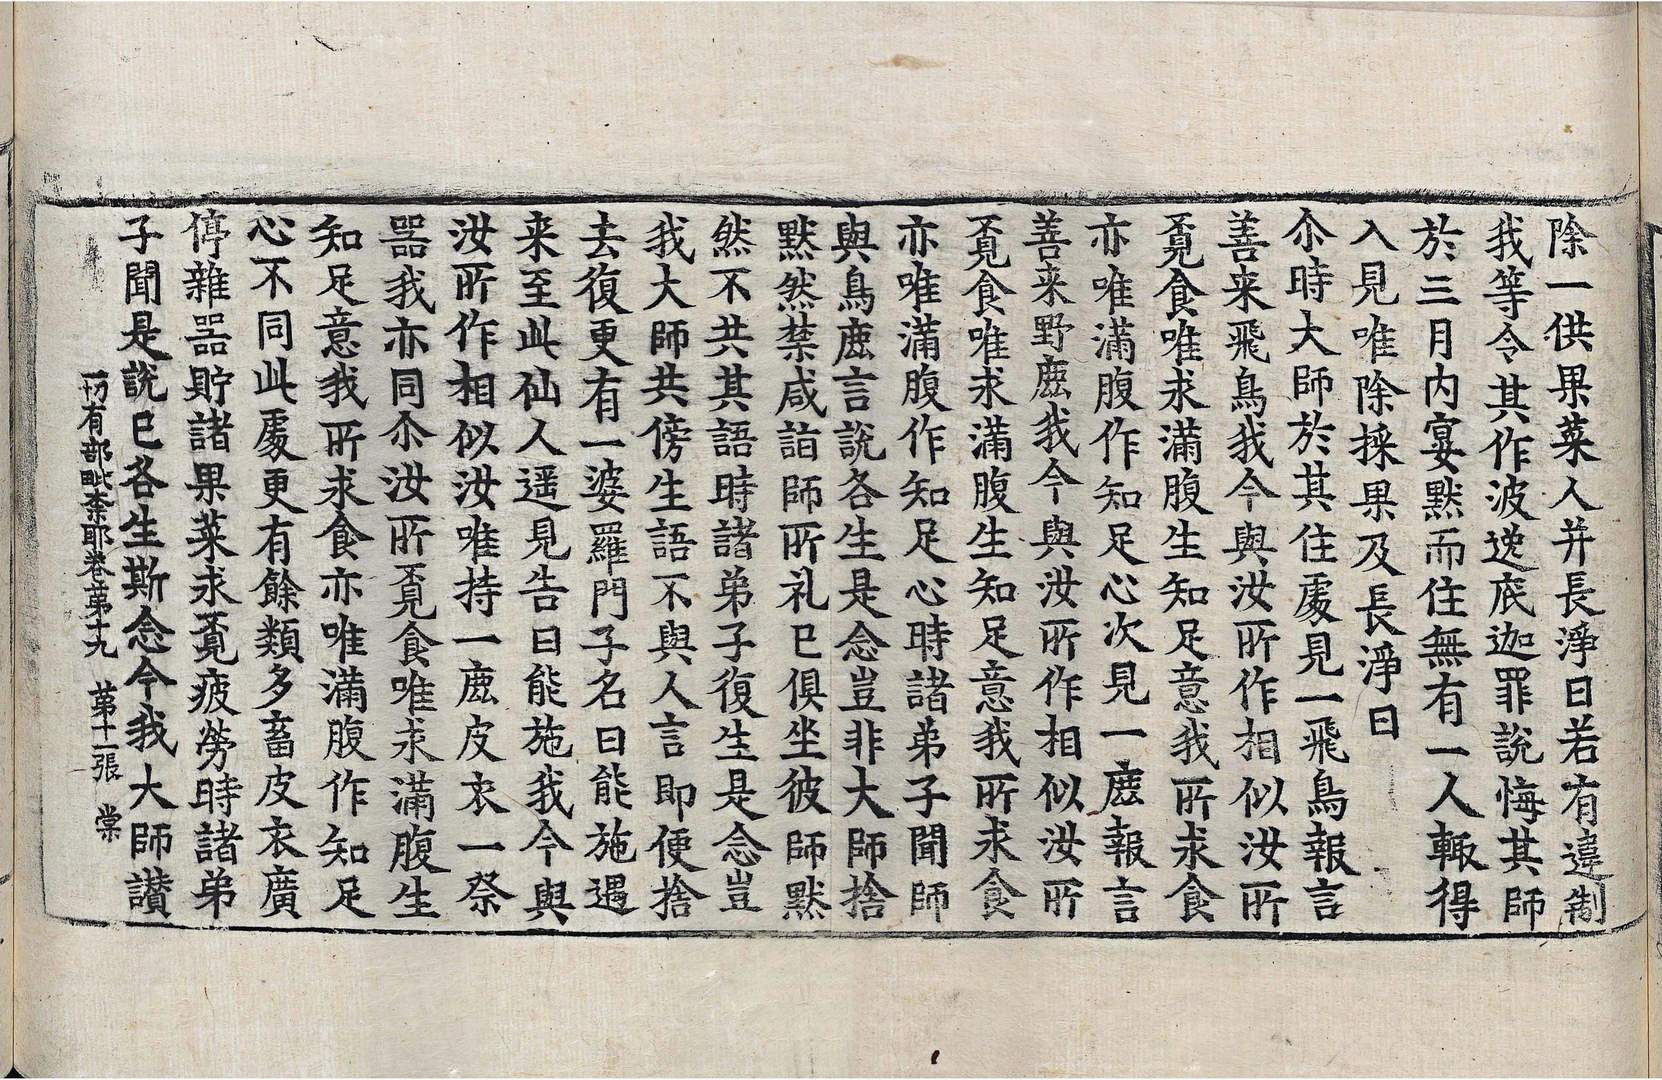 除一供果菜人并長淨日若有違制
我等令其作波逸底迦罪說悔其師
於三月内宴默而住無有一人輙得
入見唯除採果及長淨日
尒時大師於其住處見一飛鳥報言
善来飛鳥我今與汝所作相似汝所
覔食唯求滿腹生知足意我所求食
亦唯滿腹作知足心次見一鹿報言
善来野鹿我今與汝所作相似汝所
覔食唯求滿腹生知足意我所求食
亦唯滿腹作知足心時諸弟子聞師
與鳥鹿言說各生是念豈非大師捨
默然禁咸詣師所礼已俱坐彼師默
然不共其語時諸弟子復生是念豈
我大師共傍生語不與人言即便捨
去復更有一婆羅門子名曰能施遇
来至此仙人遥見告曰能施我今與
汝所作相似汝唯持一鹿皮衣一祭
器我亦同尒汝所覔食唯求滿腹生
知足意我所求食亦唯滿腹作知足
心不同此處更有餘類多畜皮衣廣
停雜器貯諸果菜求覔疲勞時諸弟
子聞是說已各生斯念今我大師讃
一切有部毗柰耶卷第十九　第十一張　棠